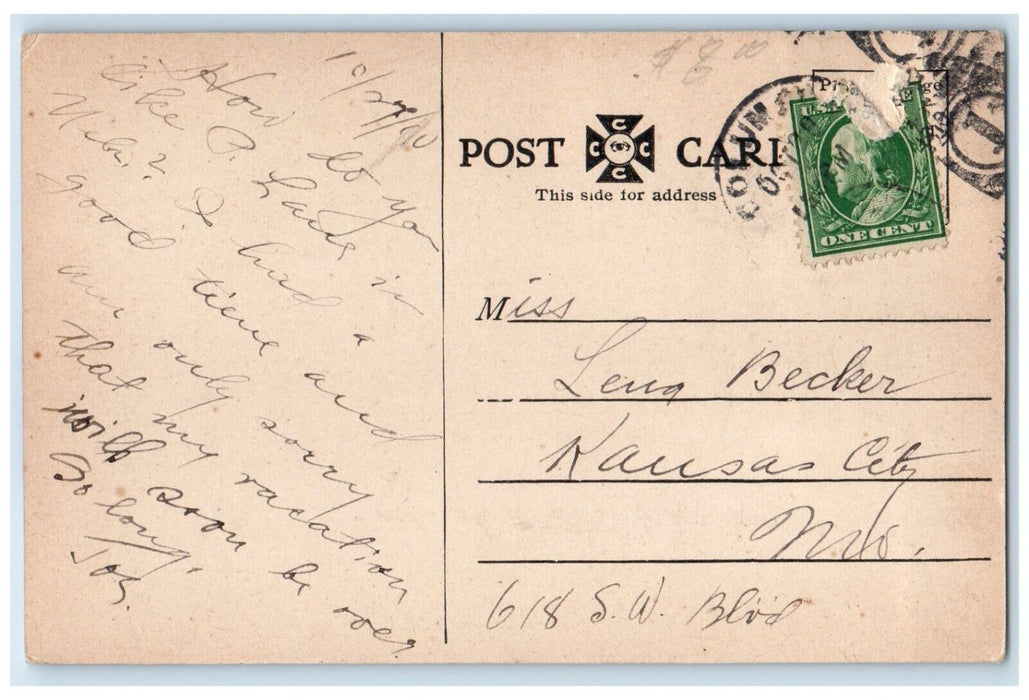 10/29/10
How do you
like P. Cards in
Nebr? I had a
good time and
am only sorry
that my vacation
will soon be over
So long,
Joy.
POST CARD
C C C C
This side for address
U.S.
ONE CENT
Miss
Lena Becker
Kansas City
Mo.
618 S.W. Blvd